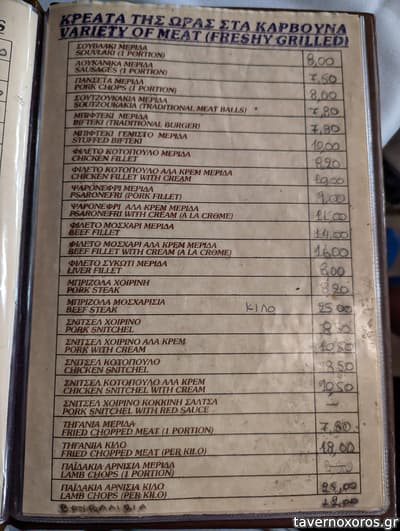 ΚΡΕΑΤΑ ΤΗΣ ΩΡΑΣ ΣΤΑ ΚΑΡΒΟΥΝΑ
VARIETY OF MEAT (FRESHY GRILLED)
ΣΟΥΒΛΑΚΙ ΜΕΡΙΔΑ
SOUVLAKI (1 PORTION) 8,00
ΛΟΥΚΑΝΙΚΑ ΜΕΡΙΔΑ
SAUSAGES (1 PORTION) 7,50
ΠΑΝΣΕΤΑ ΜΕΡΙΔΑ
PORK CHOPS (1 PORTION) 8,00
ΣΟΥΤΖΟΥΚΑΚΙΑ ΜΕΡΙΔΑ
SOUTZOUKAKIA (TRADITIONAL MEAT BALLS) * 7,80
ΜΠΙΦΤΕΚΙ ΜΕΡΙΔΑ
BIFTEKI (TRADITIONAL BURGER) 7,80
ΜΠΙΦΤΕΚΙ ΓΕΜΙΣΤΟ ΜΕΡΙΔΑ
STUFFED BIFTEKI 10,00
ΦΙΛΕΤΟ ΚΟΤΟΠΟΥΛΟ ΜΕΡΙΔΑ
CHICKEN FILLET
ΦΙΛΕΤΟ ΚΟΤΟΠΟΥΛΟ ΑΛΑ ΚΡΕΜ ΜΕΡΙΔΑ
CHICKEN FILLET WITH CREAM
ΨΑΡΟΝΕΦΡΙ ΜΕΡΙΔΑ
PSARONEFRI (PORK FILLET) 9,00
ΨΑΡΟΝΕΦΡΙ ΑΛΑ ΚΡΕΜ ΜΕΡΙΔΑ
PSARONEFRI WITH CREAM (A LA CROME) 11,00
ΦΙΛΕΤΟ ΜΟΣΧΑΡΙ ΜΕΡΙΔΑ
BEEF FILLET 14,00
ΦΙΛΕΤΟ ΜΟΣΧΑΡΙ ΑΛΑ ΚΡΕΜ ΜΕΡΙΔΑ
BEEF FILLET WITH CREAM (A LA CROME) 16,00
ΦΙΛΕΤΟ ΣΥΚΩΤΙ ΜΕΡΙΔΑ
LIVER FILLET 8,00
ΜΠΡΙΖΟΛΑ ΧΟΙΡΙΝΗ
PORK STEAK
ΜΠΡΙΖΟΛΑ ΜΟΣΧΑΡΙΣΙΑ
BEEF STEAK ΚΙΛΟ 25,00
ΣΝΙΤΣΕΛ ΧΟΙΡΙΝΟ
PORK SNITCHEL 8,50
ΣΝΙΤΣΕΛ ΧΟΙΡΙΝΟ ΑΛΑ ΚΡΕΜ
PORK WITH CREAM 10,50
ΣΝΙΤΣΕΛ ΚΟΤΟΠΟΥΛΟ
CHICKEN SNITCHEL 8,50
ΣΝΙΤΣΕΛ ΚΟΤΟΠΟΥΛΟ ΑΛΑ ΚΡΕΜ
CHICKEN SNITCHEL WITH CREAM 10,50
ΣΝΙΤΣΕΛ ΧΟΙΡΙΝΟ ΚΟΚΚΙΝΗ ΣΑΛΤΣΑ
PORK SNITCHEL WITH RED SAUCE —
ΤΗΓΑΝΙΑ ΜΕΡΙΔΑ
FRIED CHOPPED MEAT (1 PORTION) 7,80
ΤΗΓΑΝΙΑ ΚΙΛΟ
FRIED CHOPPED MEAT (PER KILO) 18,00
ΠΑΪΔΑΚΙΑ ΑΡΝΙΣΙΑ ΜΕΡΙΔΑ
LAMB CHOPS (1 PORTION)
ΠΑΪΔΑΚΙΑ ΑΡΝΙΣΙΑ ΚΙΛΟ
LAMB CHOPS (PER KILO)
tavernoxoros.gr